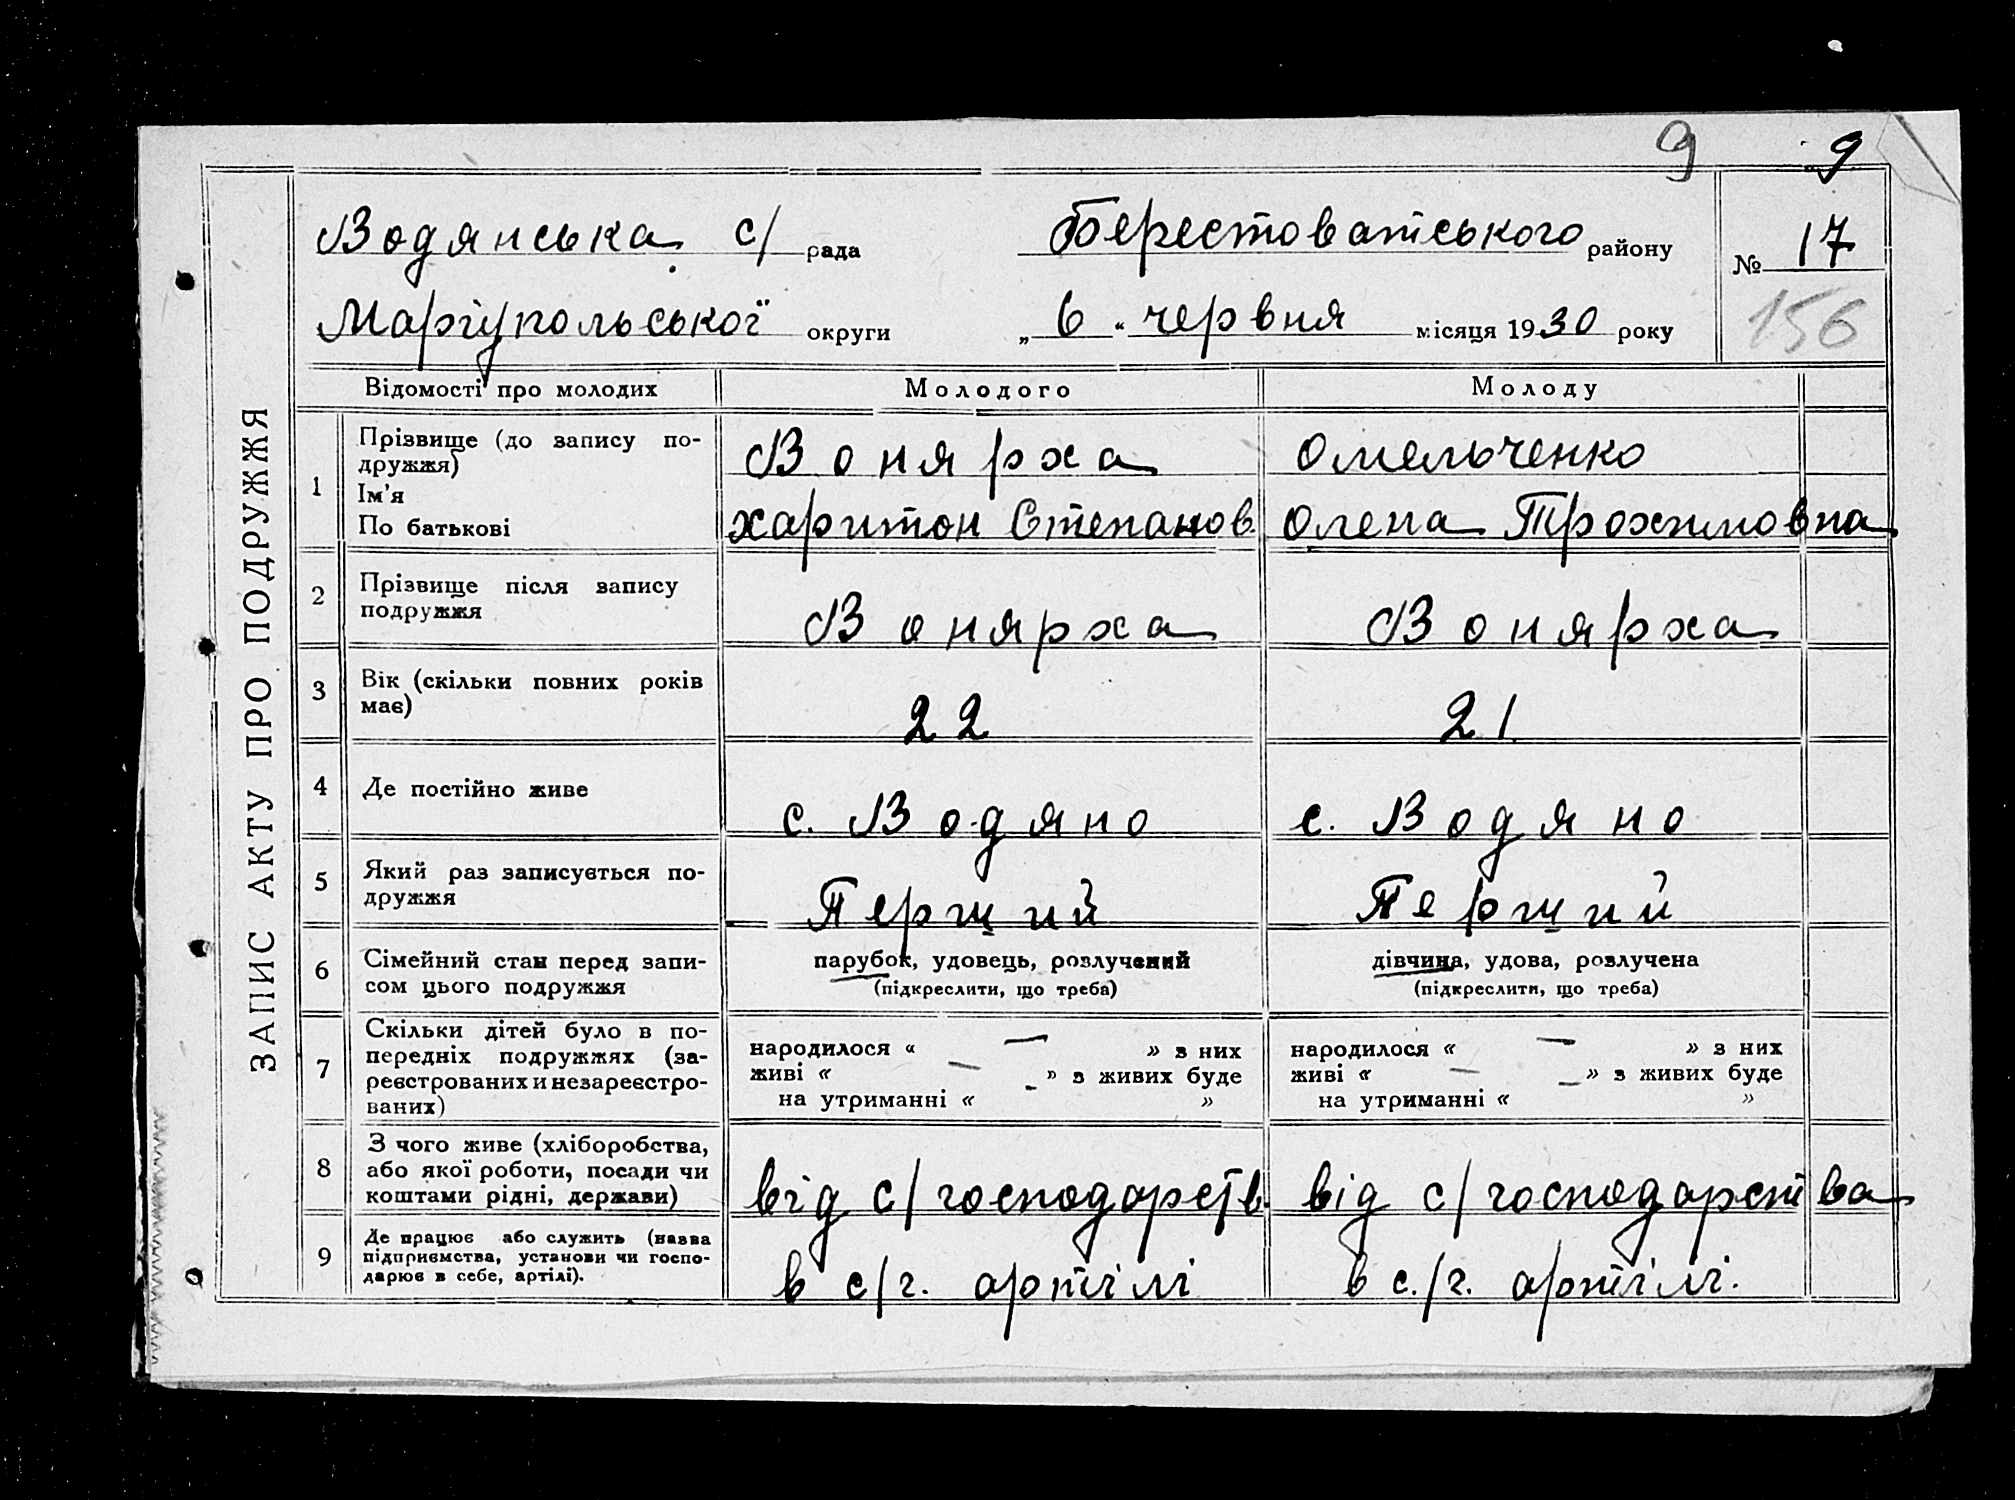 9 9
Водянська с/ рада Берестоватського району № 17
Маріупольської округи „ 6 “ червня місяця 1930 року 156
ЗАПИС АКТУ ПРО ПОДРУЖЖЯ
Відомості про молодих Молодого Молоду
1 Прізвище (до запису по-
дружжя)
Ім'я
По батькові
Вонярха
Харитон Степанов.
Омельченко
Олена Трохимовна
2 Прізвище після запису
подружжя
Вонярха Вонярха
3 Вік (скільки повних років
має)
22 21
4 Де постійно живе с. Водяно с. Водяно
5 Який раз записується по-
дружжя
Перший Перший
6 Сімейний стан перед запи-
сом цього подружжя
парубок, удовець, розлучений
(підкреслити, що треба)
дівчина, удова, розлучена
(підкреслити, що треба)
7 Скільки дітей було в по-
передніх подружжях (за-
реєстрованих и незареєстро-
ваних)
народилося « — » з них
живі « — — » з живих буде
на утриманні « »
народилося « — » з них
живі « — — » з живих буде
на утриманні « »
8 З чого живе (хліборобства,
або якої роботи, посади чи
коштами рідні, держави)
від с/господарств. від с/господарства
9 Де працює або служить (назва
підприємства, установи чи госпо-
дарює в себе, артілі).
в с/г. артілі в с./г. артілі.